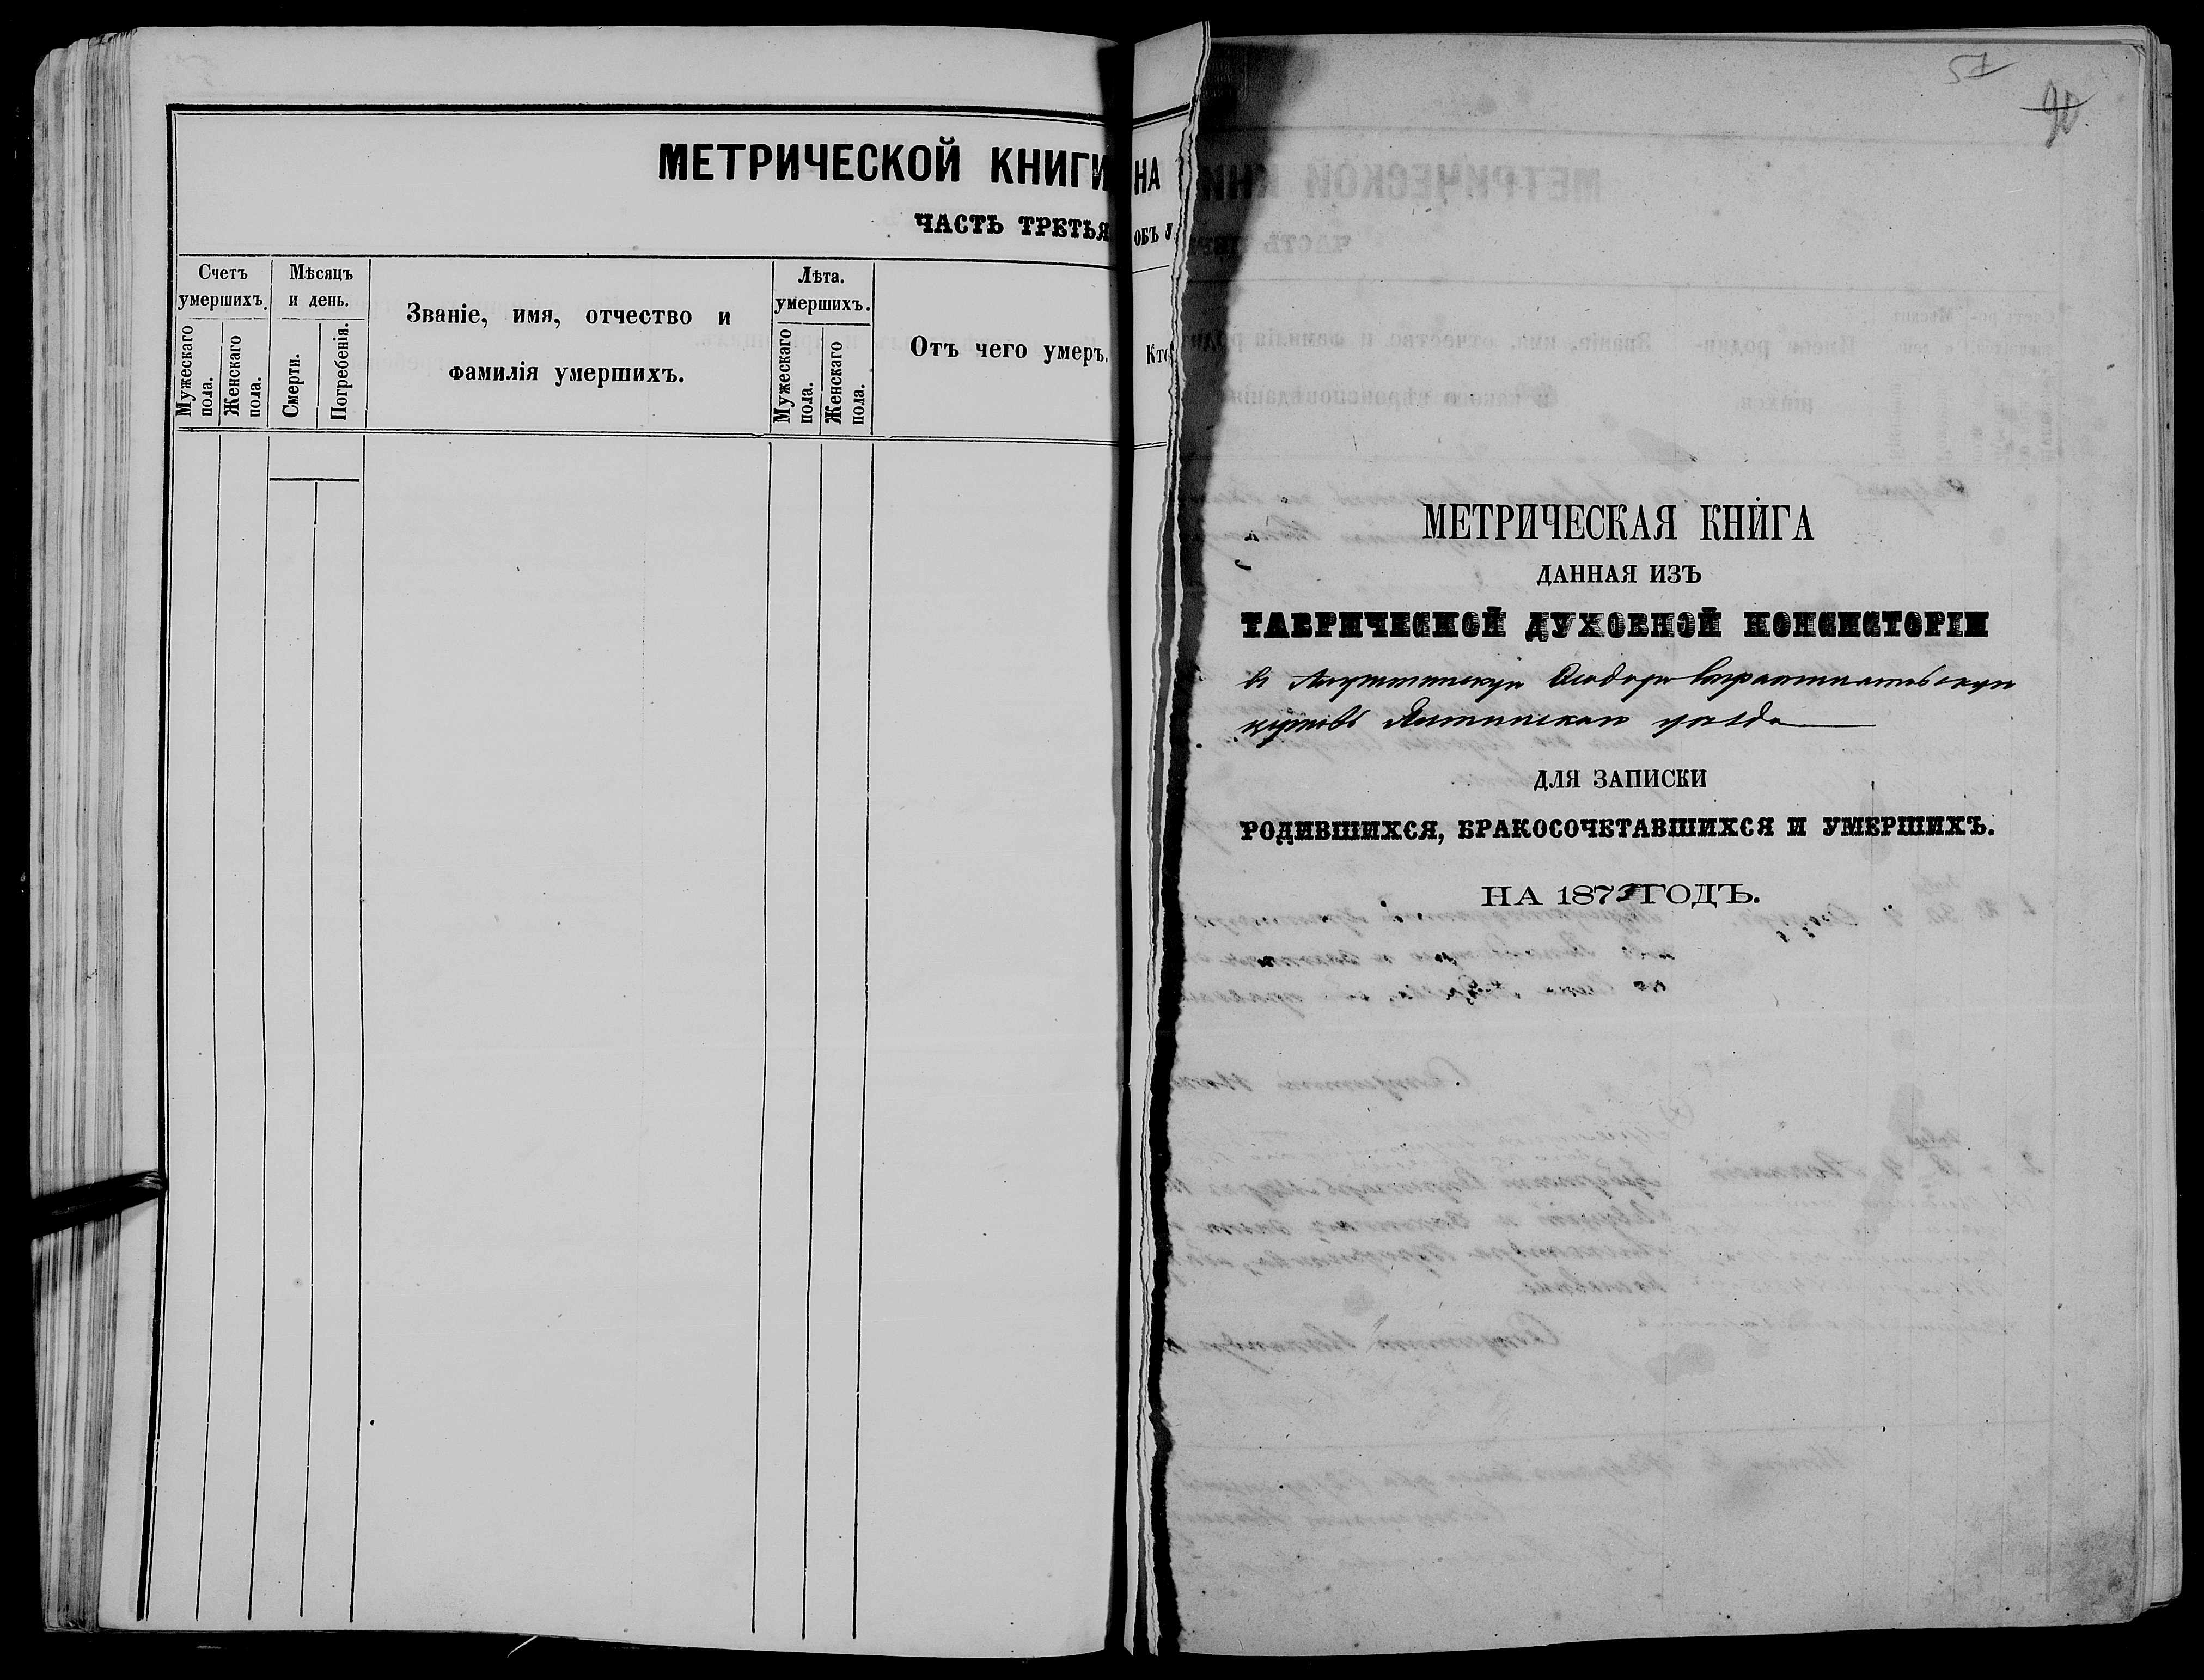 МЕТРИЧЕСКОЙ КНИГИ НА
ЧАСТЬ ТРЕТЬЯ ОБЪ У
Счетъ умершихъ.
Мужескаго пола.
Женскаго пола.
Мѣсяцъ и день.
Смерти.
Погребенія.
Званіе, имя, отчество и
фамилія умершихъ.
Лѣта. умершихъ.
Мужескаго пола.
Женскаго пола.
Отъ чего умеръ.
Кто
57
90
МЕТРИЧЕСКАЯ КНИГА
ДАННАЯ ИЗЪ
ТАВРИЧЕСКОЙ ДУХОВНОЙ КОНСИСТОРІИ
въ Алуштинскую Ѳеодоро-Стратилатовскую
церковь Ялтинскаго уѣзда
ДЛЯ ЗАПИСКИ
РОДИВШИХСЯ, БРАКОСОЧЕТАВШИХСЯ И УМЕРШИХЪ.
НА 1873 ГОДЪ.